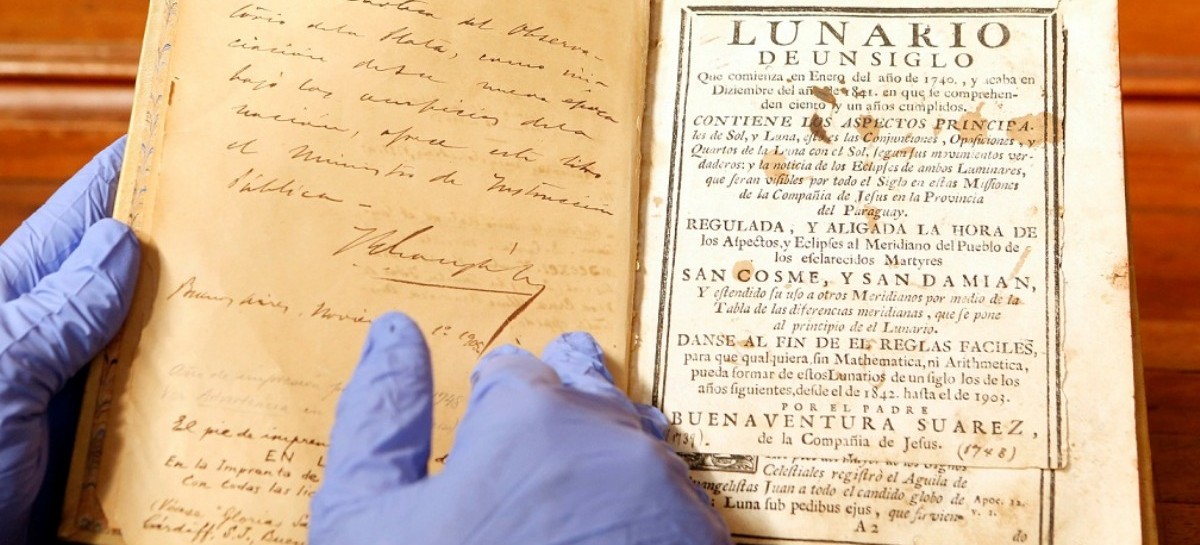 del Observa-
torio de la Plata, como ini-
ciación de esa nueva época
bajo los auspicios de la
nación, ofrece este libro
el Ministro de Instrucción
Pública -
Buenos Aires, 1º
Año de impresión 1748
El pie de impren
EN L
En la Imprenta de
Con todas las lic
(Véase "Glorias
S.J., Buen
LUNARIO
DE UN SIGLO
Que comienza en Enero del año de 1740., y acaba en
Diziembre del año de 1841. en que se comprehen-
den ciento y un años cumplidos.
CONTIENE LOS ASPECTOS PRINCIPA-
les de Sol, y Luna, esto es las Conjunciones, Oposiciones, y
Quartos de la Luna con el Sol, segun sus movimientos ver-
daderos: y la noticia de los Eclipses de ambos Luminares,
que seran visibles por todo el Siglo en estas Missiones
de la Compañia de Jesus en la Provincia
del Paraguay.
REGULADA, Y ALIGADA LA HORA DE
los Aspectos, y Eclipses al Meridiano del Pueblo de
los esclarecidos Martyres
SAN COSME, Y SAN DAMIAN,
Y estendido su uso a otros Meridianos por medio de la
Tabla de las diferencias meridianas, que se pone
al principio de el Lunario.
DANSE AL FIN DE EL REGLAS FACILES,
para que qualquiera, sin Mathematica, ni Arithmetica,
pueda formar de estos Lunarios de un siglo los de los
años siguientes, desde el de 1842. hasta el de 1903.
POR EL PADRE
BUENAVENTURA SUAREZ,
(1739). de la Compañia de Jesus. (1748)
Celestiales registrò el Aguila de
vangelistas Juan a todo el candido globo de Apoc. 12.
: Luna sub pedibus ejus, que sirvien- v. 1.
A 2 do